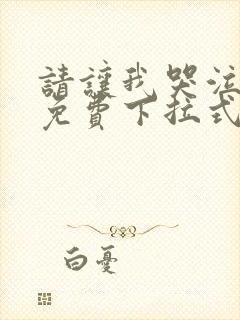 請讓我哭泣
免費下拉式
白憂